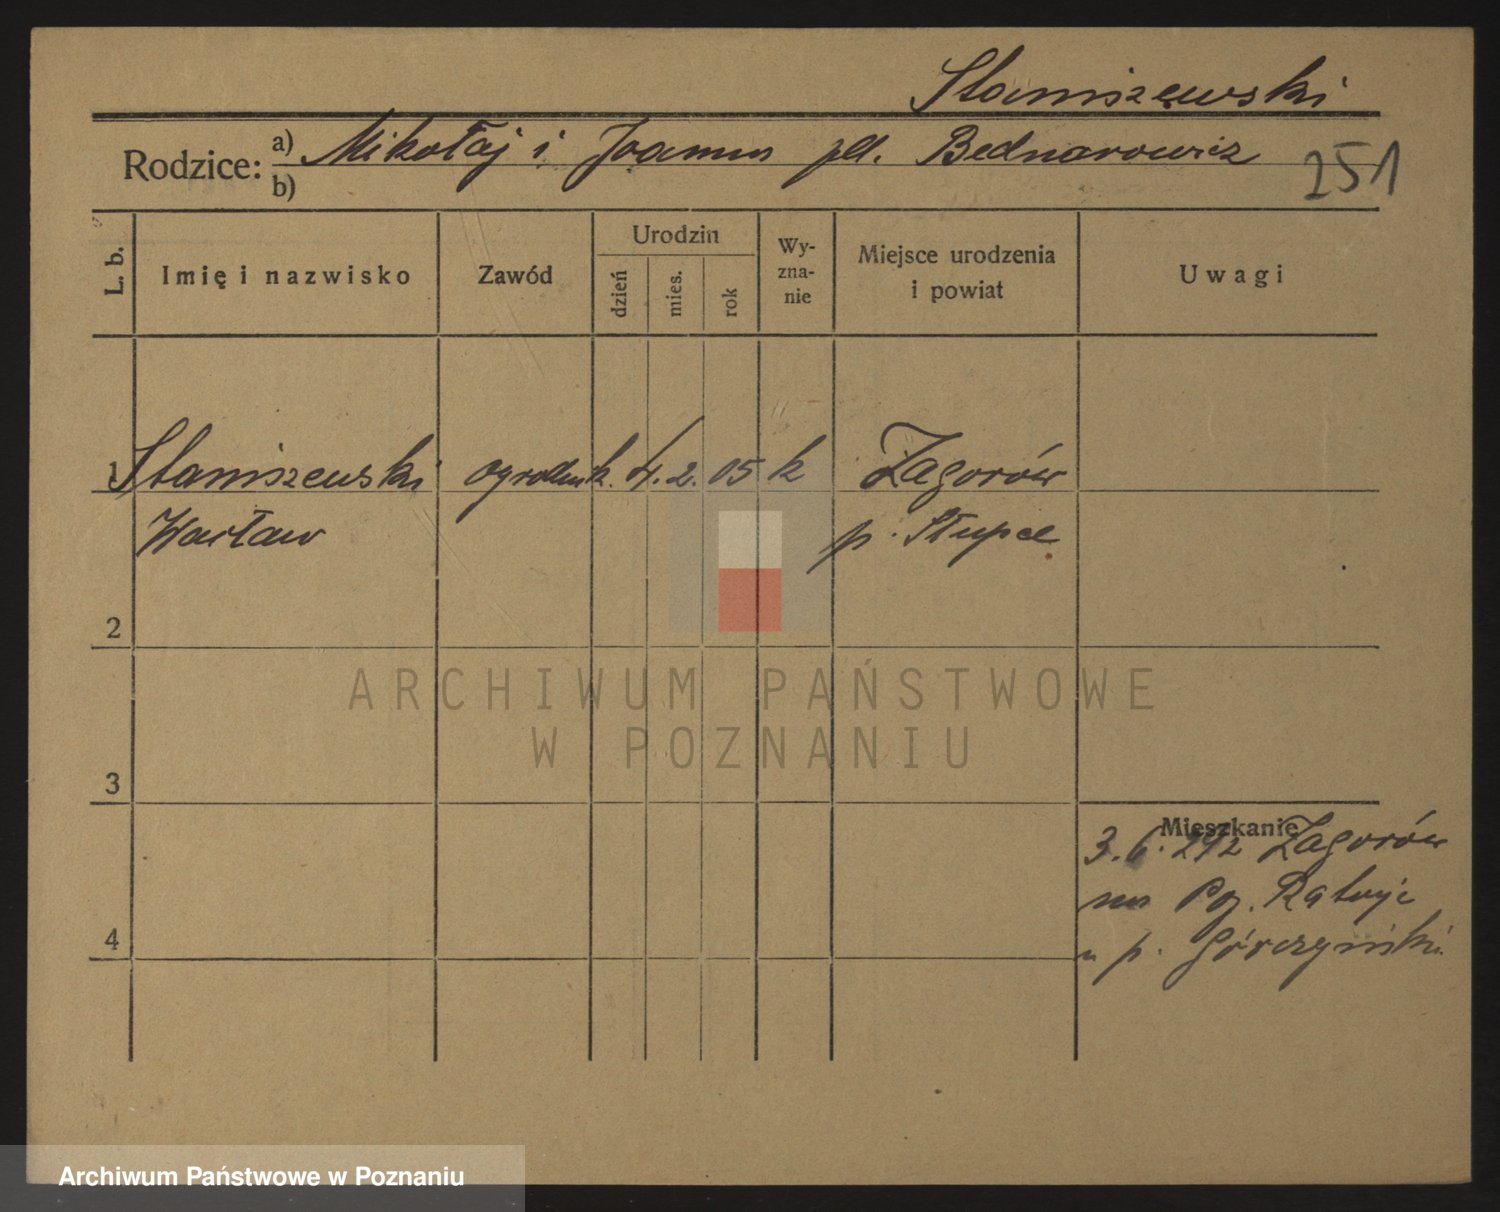 Staniszewski
Rodzice: a) Mikołaj i Joanna pld. Bednarowicz
b)
251
L. b.
Imię i nazwisko
Zawód
Urodzin
dzień
mies.
rok
Wy-
zna-
nie
Miejsce urodzenia
i powiat
Uwagi
1 Staniszewski ogrodnik. 4. 2. 05 k Zagorów
Wacław p. Słupce
2
3
4
Mieszkanie
3.6. Zagorów
Pg.
u p. Górczyński
ARCHIWUM PAŃSTWOWE
W POZNANIU
Archiwum Państwowe w Poznaniu